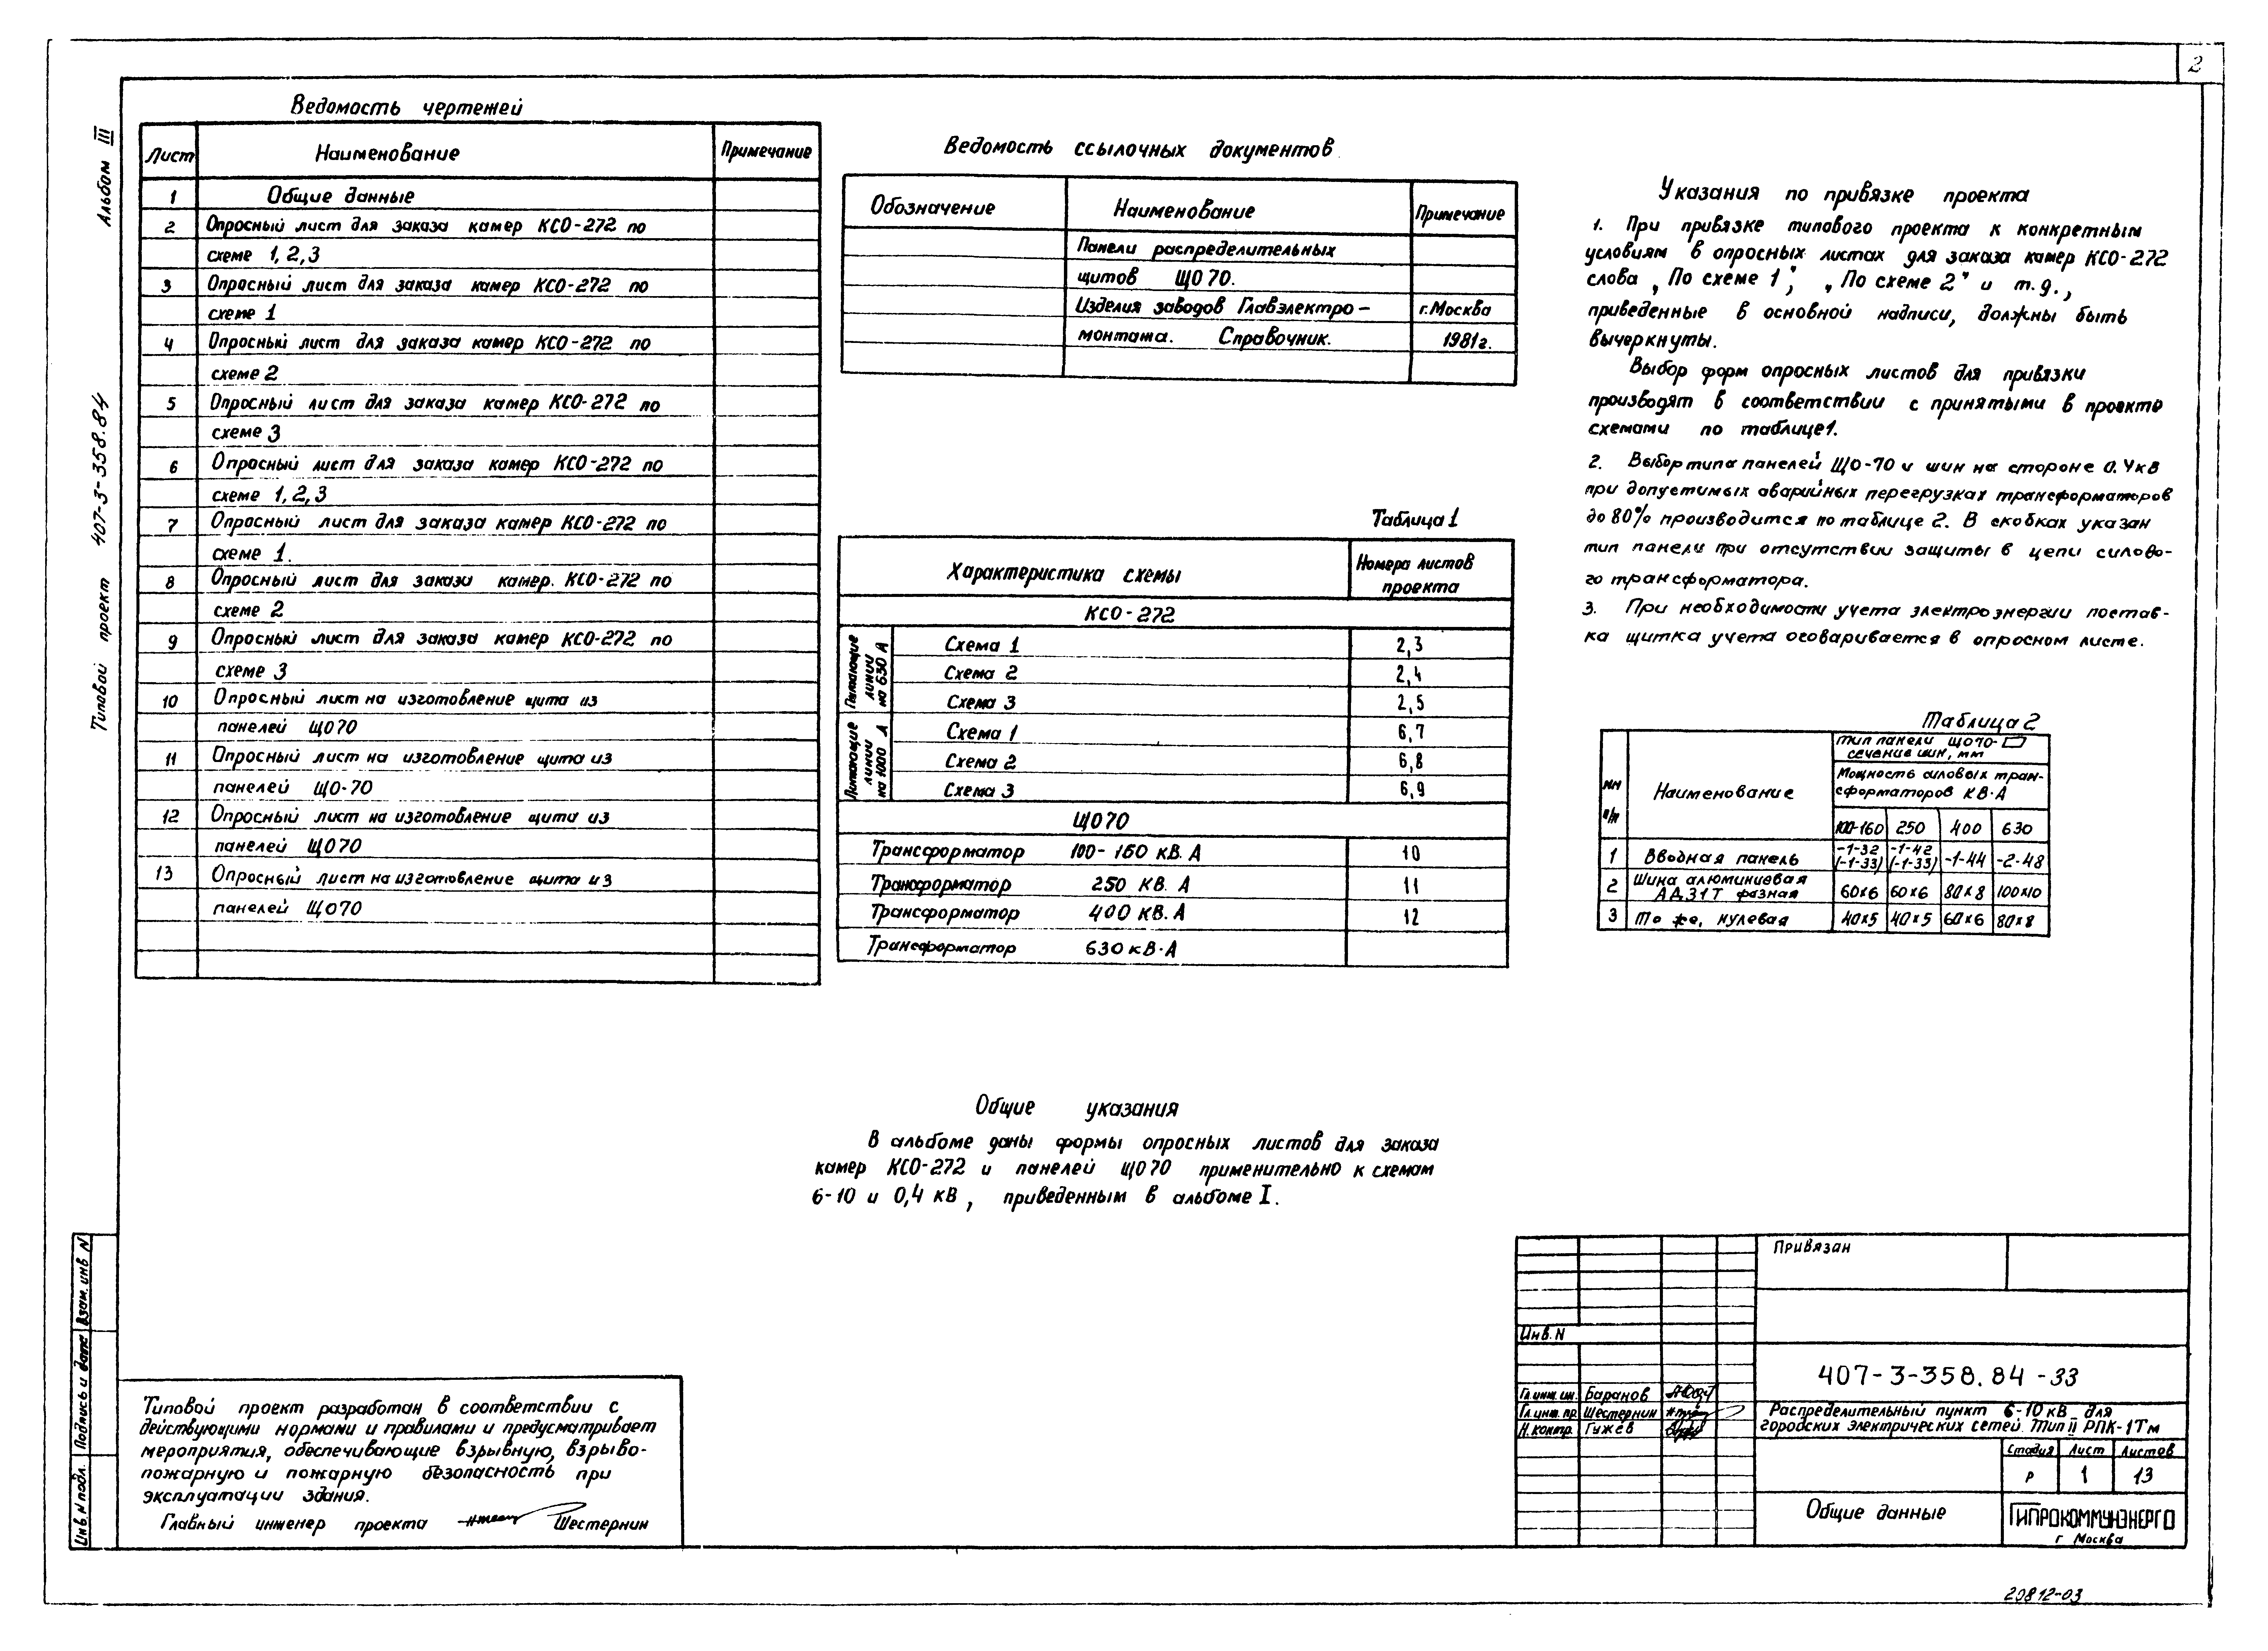 2
Альбом III
Типовой проект 407-3-358.84
Ведомость чертежей
Лист Наименование Примечание
1 Общие данные
2 Опросный лист для заказа камер КСО-272 по
схеме 1, 2, 3
3 Опросный лист для заказа камер КСО-272 по
схеме 1
4 Опросный лист для заказа камер КСО-272 по
схеме 2
5 Опросный лист для заказа камер КСО-272 по
схеме 3
6 Опросный лист для заказа камер КСО-272 по
схеме 1, 2, 3
7 Опросный лист для заказа камер КСО-272 по
схеме 1.
8 Опросный лист для заказа камер. КСО-272 по
схеме 2
9 Опросный лист для заказа камер КСО-272 по
схеме 3
10 Опросный лист на изготовление щита из
панелей ЩО70
11 Опросный лист на изготовление щита из
панелей ЩО-70
12 Опросный лист на изготовление щита из
панелей ЩО70
13 Опросный лист на изготовление щита из
панелей ЩО70
Ведомость ссылочных документов
Обозначение Наименование Примечание
Панели распределительных
щитов ЩО70.
Изделия заводов Главэлектро- г. Москва
монтажа. Справочник. 1981г.
Таблица 1
Характеристика схемы Номера листов
проекта
КСО-272
Питающие
линии
на 630 А
Схема 1 2,3
Схема 2 2,4
Схема 3 2,5
Питающие
линии
на 1000 А
Схема 1 6,7
Схема 2 6,8
Схема 3 6,9
ЩО70
Трансформатор 100-160 кВ.А 10
Трансформатор 250 КВ.А 11
Трансформатор 400 КВ.А 12
Трансформатор 630 кВ·А
Указания по привязке проекта
1. При привязке типового проекта к конкретным
условиям в опросных листах для заказа камер КСО-272
слова „По схеме 1", „По схеме 2" и т.д.,
приведенные в основной надписи, должны быть
вычеркнуты.
Выбор форм опросных листов для привязки
производят в соответствии с принятыми в проекте
схемами по таблице 1.
2. Выбор типа панелей ЩО-70 и шин на стороне 0.4кВ
при допустимых аварийных перегрузках трансформаторов
до 80% производится по таблице 2. В скобках указан
тип панели при отсутствии защиты в цепи силово-
го трансформатора.
3. При необходимости учета электроэнергии постав-
ка щитка учета оговаривается в опросном листе.
Таблица 2
Тип панели ЩО70-
сечение шин, мм
Мощность силовых тран-
сформаторов КВ·А
NN
п/п
Наименование
100-160 250 400 630
1 Вводная панель -1-32 (-1-33) -1-42 (-1-33) -1-44 -2-48
2 Шина алюминиевая
АД31Т фазная 60х6 60х6 80х8 100х10
3 То же, нулевая 40х5 40х5 60х6 80х8
Общие указания
В альбоме даны формы опросных листов для заказа
камер КСО-272 и панелей ЩО70 применительно к схемам
6-10 и 0,4 кВ, приведенным в альбоме I.
Типовой проект разработан в соответствии с
действующими нормами и правилами и предусматривает
мероприятия, обеспечивающие взрывную, взрыво-
пожарную и пожарную безопасность при
эксплуатации здания.
Главный инженер проекта Шестернин
Инв. N подл. Подпись и дата Взам. инв N
Привязан
Инв. N
407-3-358.84-33
Гл. инж. ин. Баранов
Гл. инж. пр. Шестернин
Н. контр. Гужёв
Распределительный пункт 6-10 кВ для
городских электрических сетей. Тип II РПК-1Тм
Стадия Лист Листов
Р 1 13
Общие данные
ГИПРОКОММУНЭНЕРГО
г Москва
20812-03